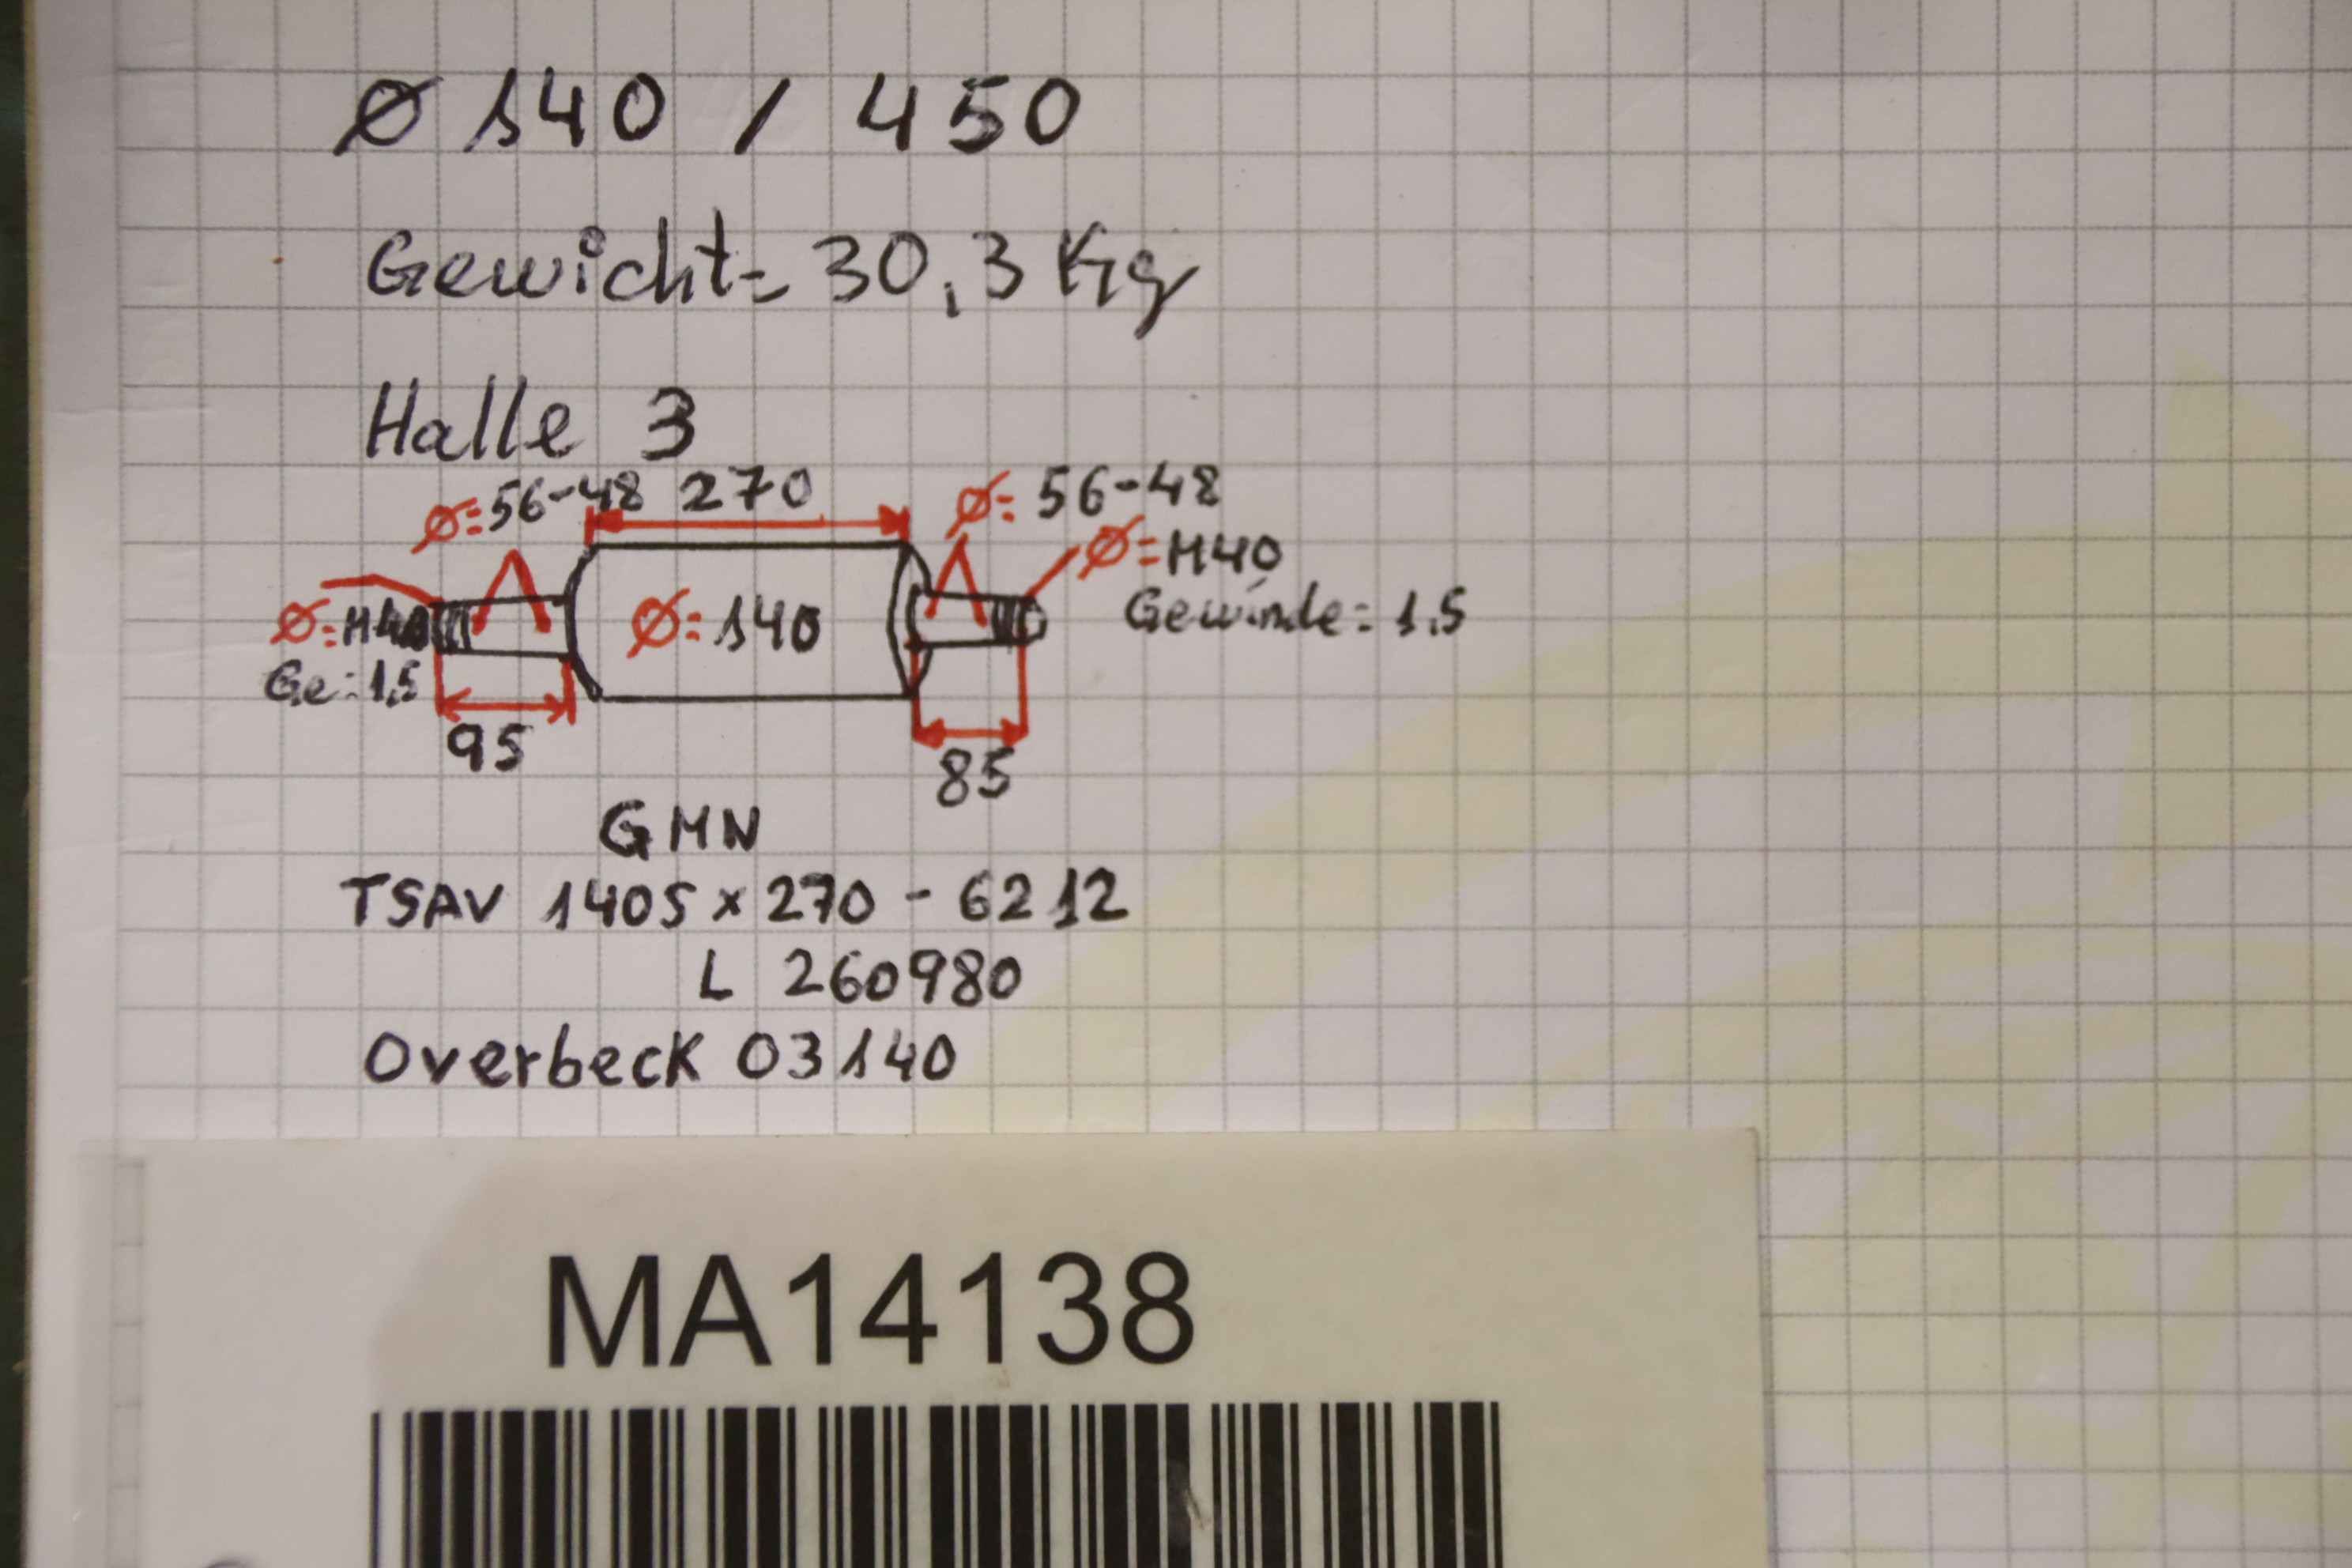 Ø 140 / 450
Gewicht= 30,3 Kg
Halle 3
Ø=56-48 270 Ø= 56-48
Ø=M40
Ø=M40 Ø=140 Gewinde= 1,5
Ge=1,5
95 85
GMN
TSAV 140S x 270 - 6212
L 260980
Overbeck 03140
MA14138